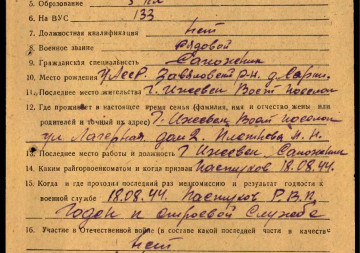 5. Образование 3 кл
6. На ВУС 133
7. Должностная квалификация нет
8. Военное звание Рядовой
9. Гражданская специальность Сапожник
10. Место рождения УАССР. р-н. д.
11. Последнее место жительства г. Ижевск Вост поселок
12. Где проживает в настоящее время семья (фамилия, имя и отчество жены или
родителей и точный их адрес) г. Ижевск, Вост поселок
ул. Лагерная дом 2.
13. Последнее место работы и должность г Ижевск. Сапожник
14. Каким райгорвоенкоматом и когда призван Пастухов 18.08.44.
15. Когда и где проходил последний раз медкомиссию и результат годности к
военной службе 18.08.44. Пастухов. Р.В.К.
годен к строевой службе
16. Участие в Отечественной войне (в составе какой последней части в качестве
нет